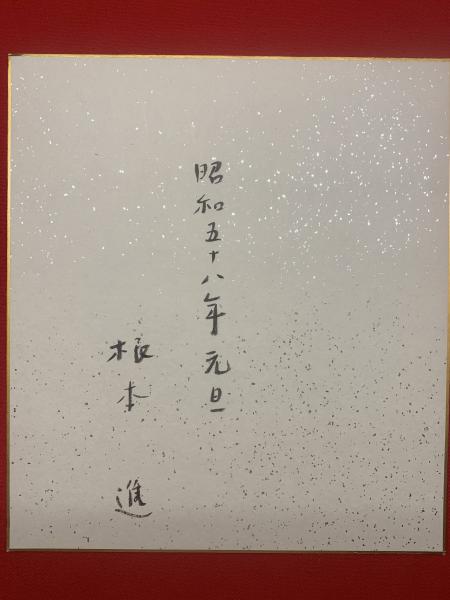 昭和五十八年元旦
根本進